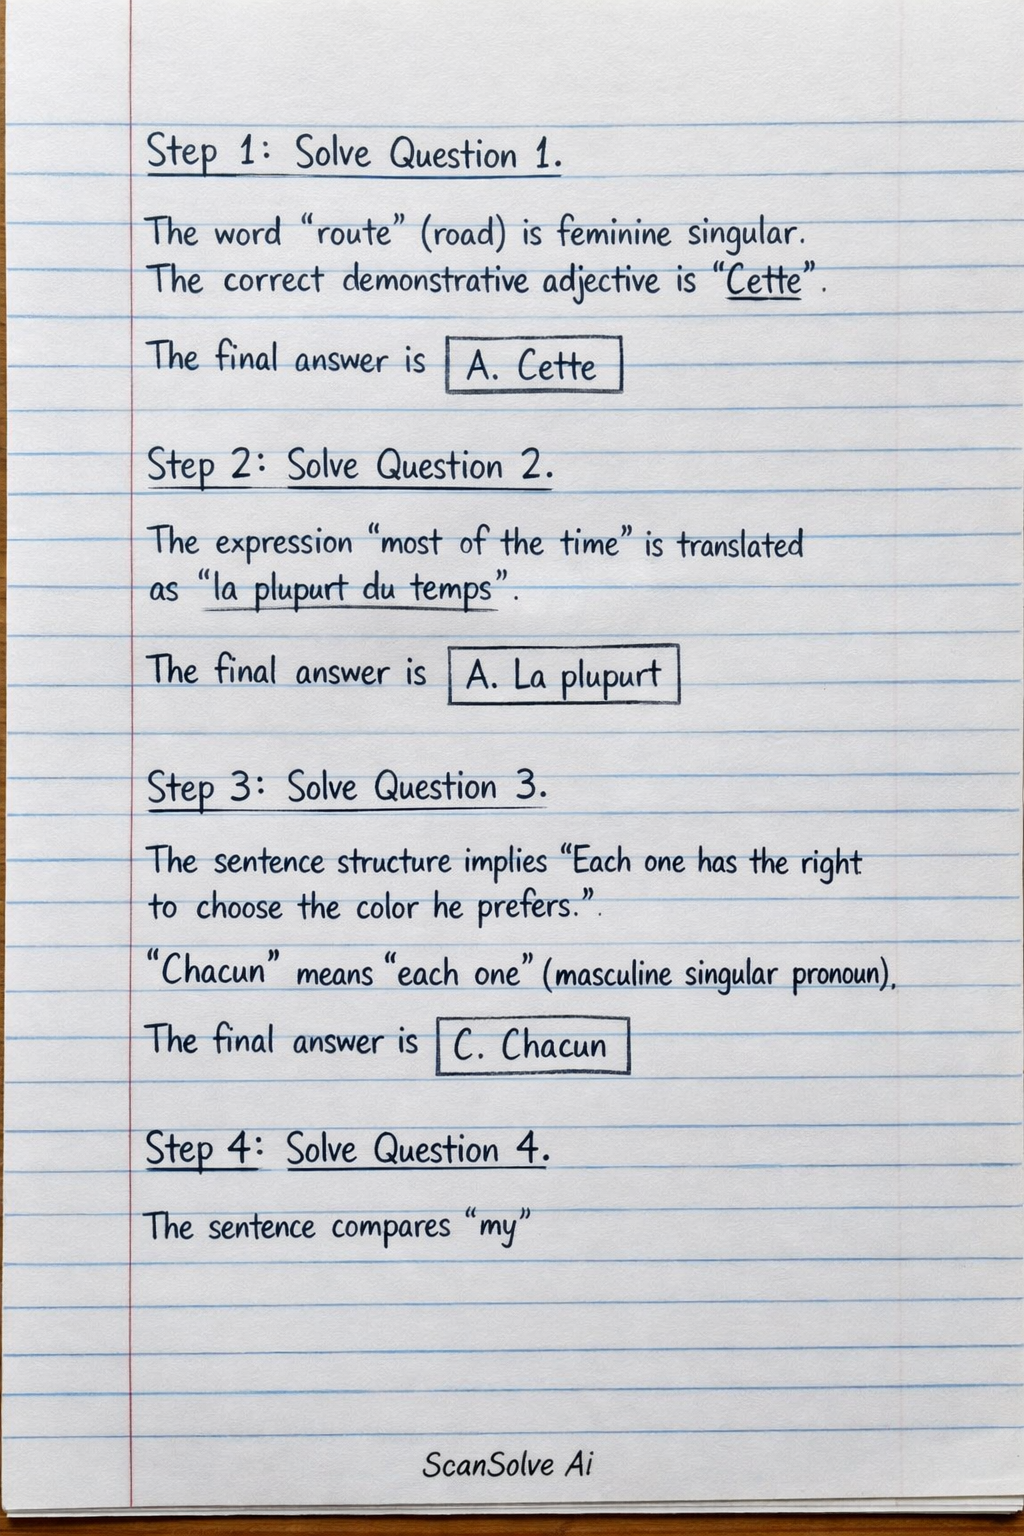 Step 1: Solve Question 1.
The word “route” (road) is feminine singular.
The correct demonstrative adjective is “Cette”.
The final answer is A. Cette
Step 2: Solve Question 2.
The expression “most of the time” is translated
as “la plupurt du temps”.
The final answer is A. La plupurt
Step 3: Solve Question 3.
The sentence structure implies “Each one has the right
to choose the color he prefers.”.
“Chacun” means “each one” (masculine singular pronoun).
The final answer is C. Chacun
Step 4: Solve Question 4.
The sentence compares “my”
ScanSolve Ai